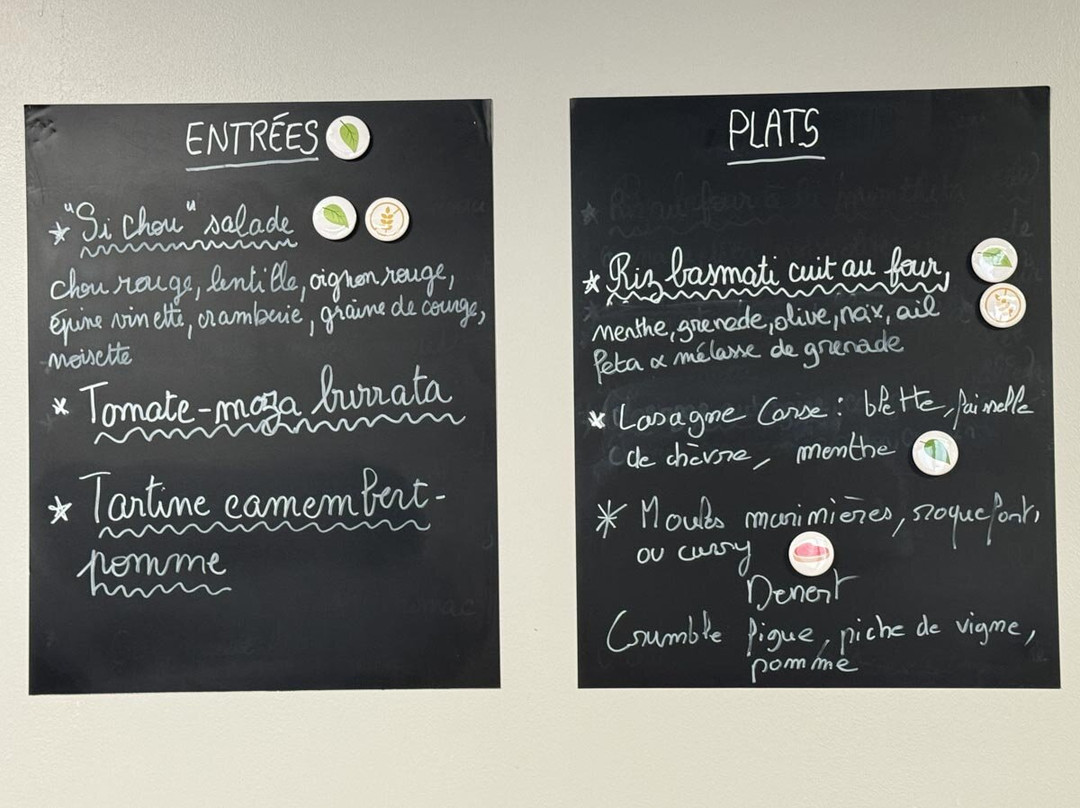 ENTRÉES
"Si chou" salade
chou rouge, lentille, oignon rouge,
épine vinette, cramberie, graine de courge,
noisette
Tomate-moza burrata
Tartine camembert-
pomme
PLATS
Riz basmati cuit au four,
menthe, grenade, olive, noix, ail
feta & mélasse de grenade
Lasagne Corse : blette, faisselle
de chèvre, menthe
Moules marinières, roquefort,
ou curry
Dessert
Crumble figue, pêche de vigne,
pomme